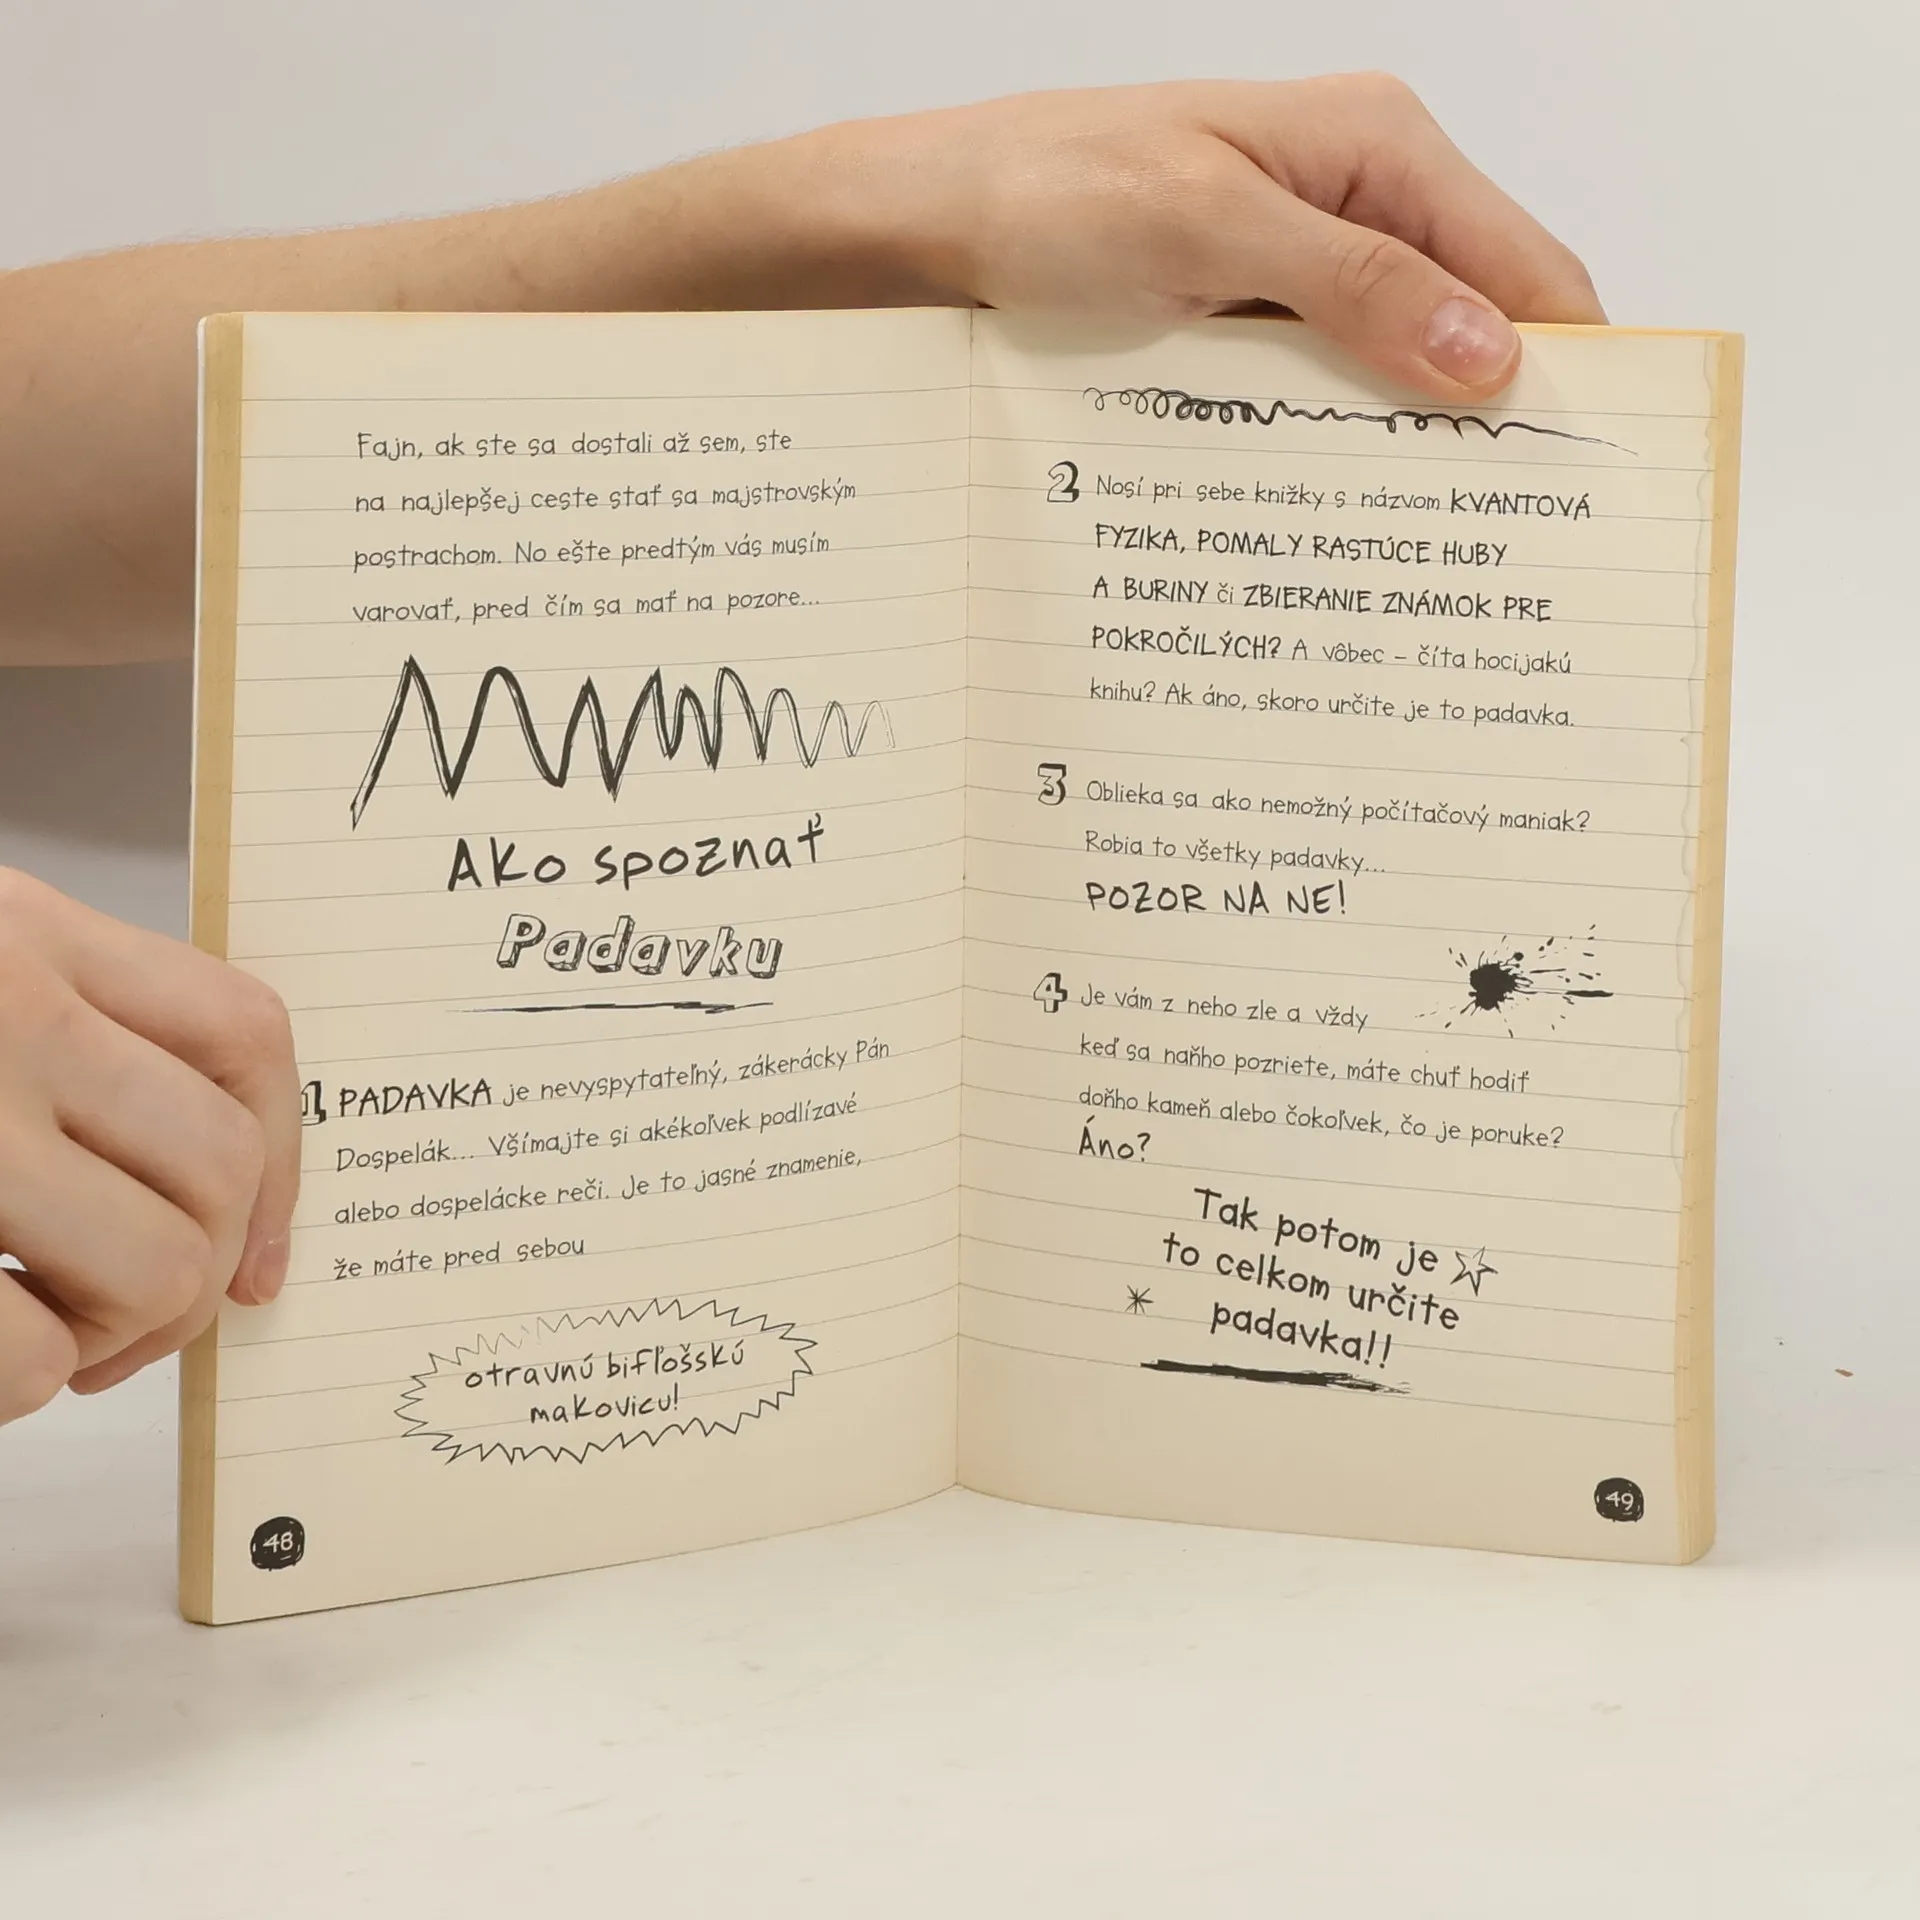 Fajn, ak ste sa dostali až sem, ste
na najlepšej ceste stať sa majstrovským
postrachom. No ešte predtým vás musím
varovať, pred čím sa mať na pozore...
Ako spoznať
Padavku
1 PADAVKA je nevyspytateľný, zákerácky Pán
Dospelák... Všímajte si akékoľvek podlízavé
alebo dospelácke reči. Je to jasné znamenie,
že máte pred sebou
otravnú bifľošskú
makovicu!
48
2 Nosí pri sebe knižky s názvom KVANTOVÁ
FYZIKA, POMALY RASTÚCE HUBY
A BURINY či ZBIERANIE ZNÁMOK PRE
POKROČILÝCH? A vôbec – číta hocijakú
knihu? Ak áno, skoro určite je to padavka.
3 Oblieka sa ako nemožný počítačový maniak?
Robia to všetky padavky...
POZOR NA NE!
4 Je vám z neho zle a vždy
keď sa naňho pozriete, máte chuť hodiť
doňho kameň alebo čokoľvek, čo je poruke?
Áno?
Tak potom je
to celkom určite
padavka!!
49